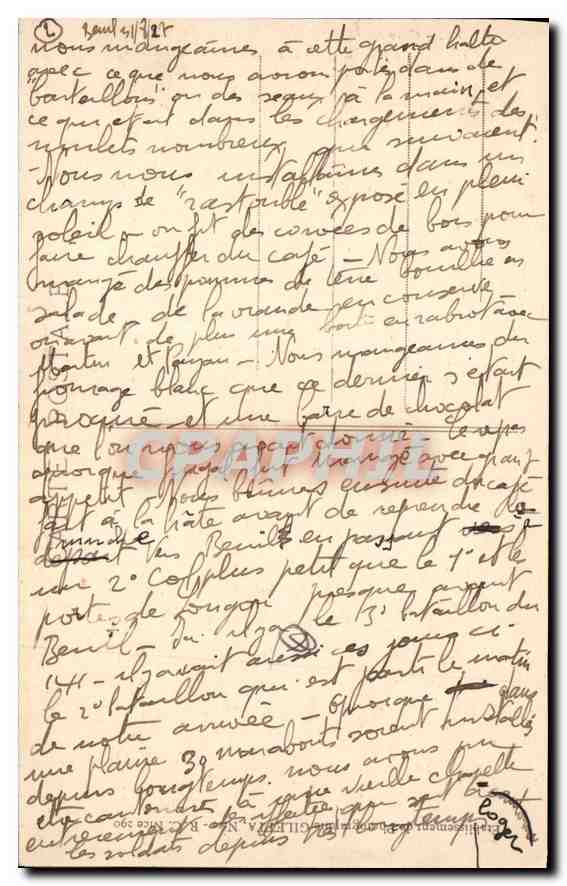 2 Beuil 31/7/27
nous mangeâmes à cette grand halte
avec ce que nous avions portés dans de
"bartaillons" ou des seaux à la main, et
ce qui était dans les chargements des
mulets nombreux qui suivaient.
- Nous nous installâmes dans un
champs de "rastouble" exposé en plein
soleil - on fit des corvées de bois pour
faire chauffer du café - Nous avons
mangé des pommes de terre bouillie en
salade - de la viande en conserve,
on avait de plus une boite en rabiot avec
Martin et - Nous mangeâmes du
fromage blanc que ce dernier s'était
procuré et une barre de chocolat
que l'on nous avait donné - Ce repas
quoique frugal fut mangé avec grand
appétit - Nous bûmes ensuite du café
fait à la hâte avant de reprendre la
marche vers Beuil en passant à
un 2° Col plus petit que le 1° et le
portes de Longon presque avant
Beuil - où il y a le 3° bataillon du
141 - il y avait aussi ces jours ci
le 2° bataillon qui est parti le matin
de notre arrivée - Quoique dans
une plaine 30 marabouts soient installés
depuis longtemps, nous avons pu
être cantonnés à une vieille chapelle
les soldats depuis longtemps
Roger
CARTE POSTALE
Etablissement de Photographie GILETTA, Nice - B. C. Nice 290
CPAPHIL